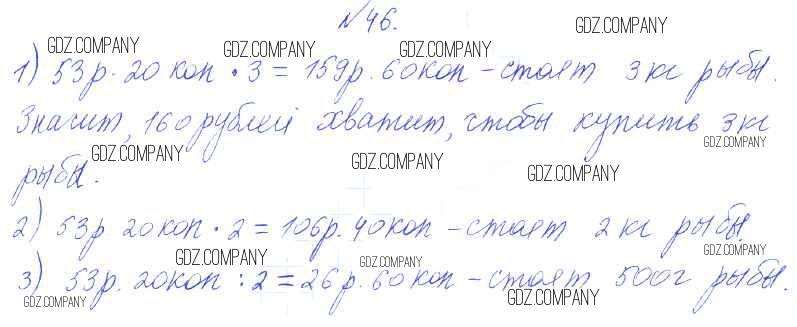 №46.
1) 53р. 20 коп • 3 = 159р. 60коп – стоят 3 кг рыбы.
Значит, 160 рублей хватит, чтобы купить 3 кг
рыбы.
2) 53р 20коп • 2 = 106р. 40коп – стоят 2 кг рыбы.
3) 53р. 20коп : 2 = 26р. 60коп – стоят 500г рыбы.
GDZ.COMPANY
GDZ.COMPANY
GDZ.COMPANY
GDZ.COMPANY
GDZ.COMPANY
GDZ.COMPANY
GDZ.COMPANY
GDZ.COMPANY
GDZ.COMPANY
GDZ.COMPANY
GDZ.COMPANY
GDZ.COMPANY
GDZ.COMPANY